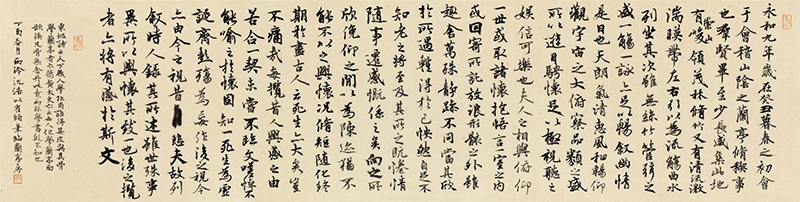 永和九年歲在癸丑暮春之初會
于會稽山陰之蘭亭脩稧事
也羣賢畢至少長咸集此地
有崇山峻領茂林脩竹又有清流激
湍暎帶左右引以為流觴曲水
列坐其次雖無絲竹管弦之
盛一觴一詠亦足以暢敘幽情
是日也天朗氣清惠風和暢仰
觀宇宙之大俯察品類之盛
所以遊目騁懷足以極視聽之
娛信可樂也夫人之相與俯仰
一世或取諸懷抱悟言一室之內
或因寄所託放浪形骸之外雖
趣舍萬殊靜躁不同當其欣
於所遇暫得於己怏然自足不
知老之將至及其所之既惓情
隨事遷感慨係之矣向之所
欣俛仰之閒以為陳迹猶不
能不以之興懷況脩短隨化終
期於盡古人云死生亦大矣豈
不痛哉每攬昔人興感之由
若合一契未嘗不臨文嗟悼不
能喻之於懷固知一死生為虛
誕齊彭殤為妄作後之視今
亦由今之視昔悲夫故列
敘時人錄其所述雖世殊事
異所以興懷其致一也後之攬
者亦將有感於斯文
東坡詩云天下幾人學杜甫誰得其皮與其骨
學蘭亭者亦然黃太史亦云世人但學蘭亭面
欲換凡骨無金丹此意非學書者不知也
丁酉春月西泠沈浩以雀頭筆臨蘭亭序